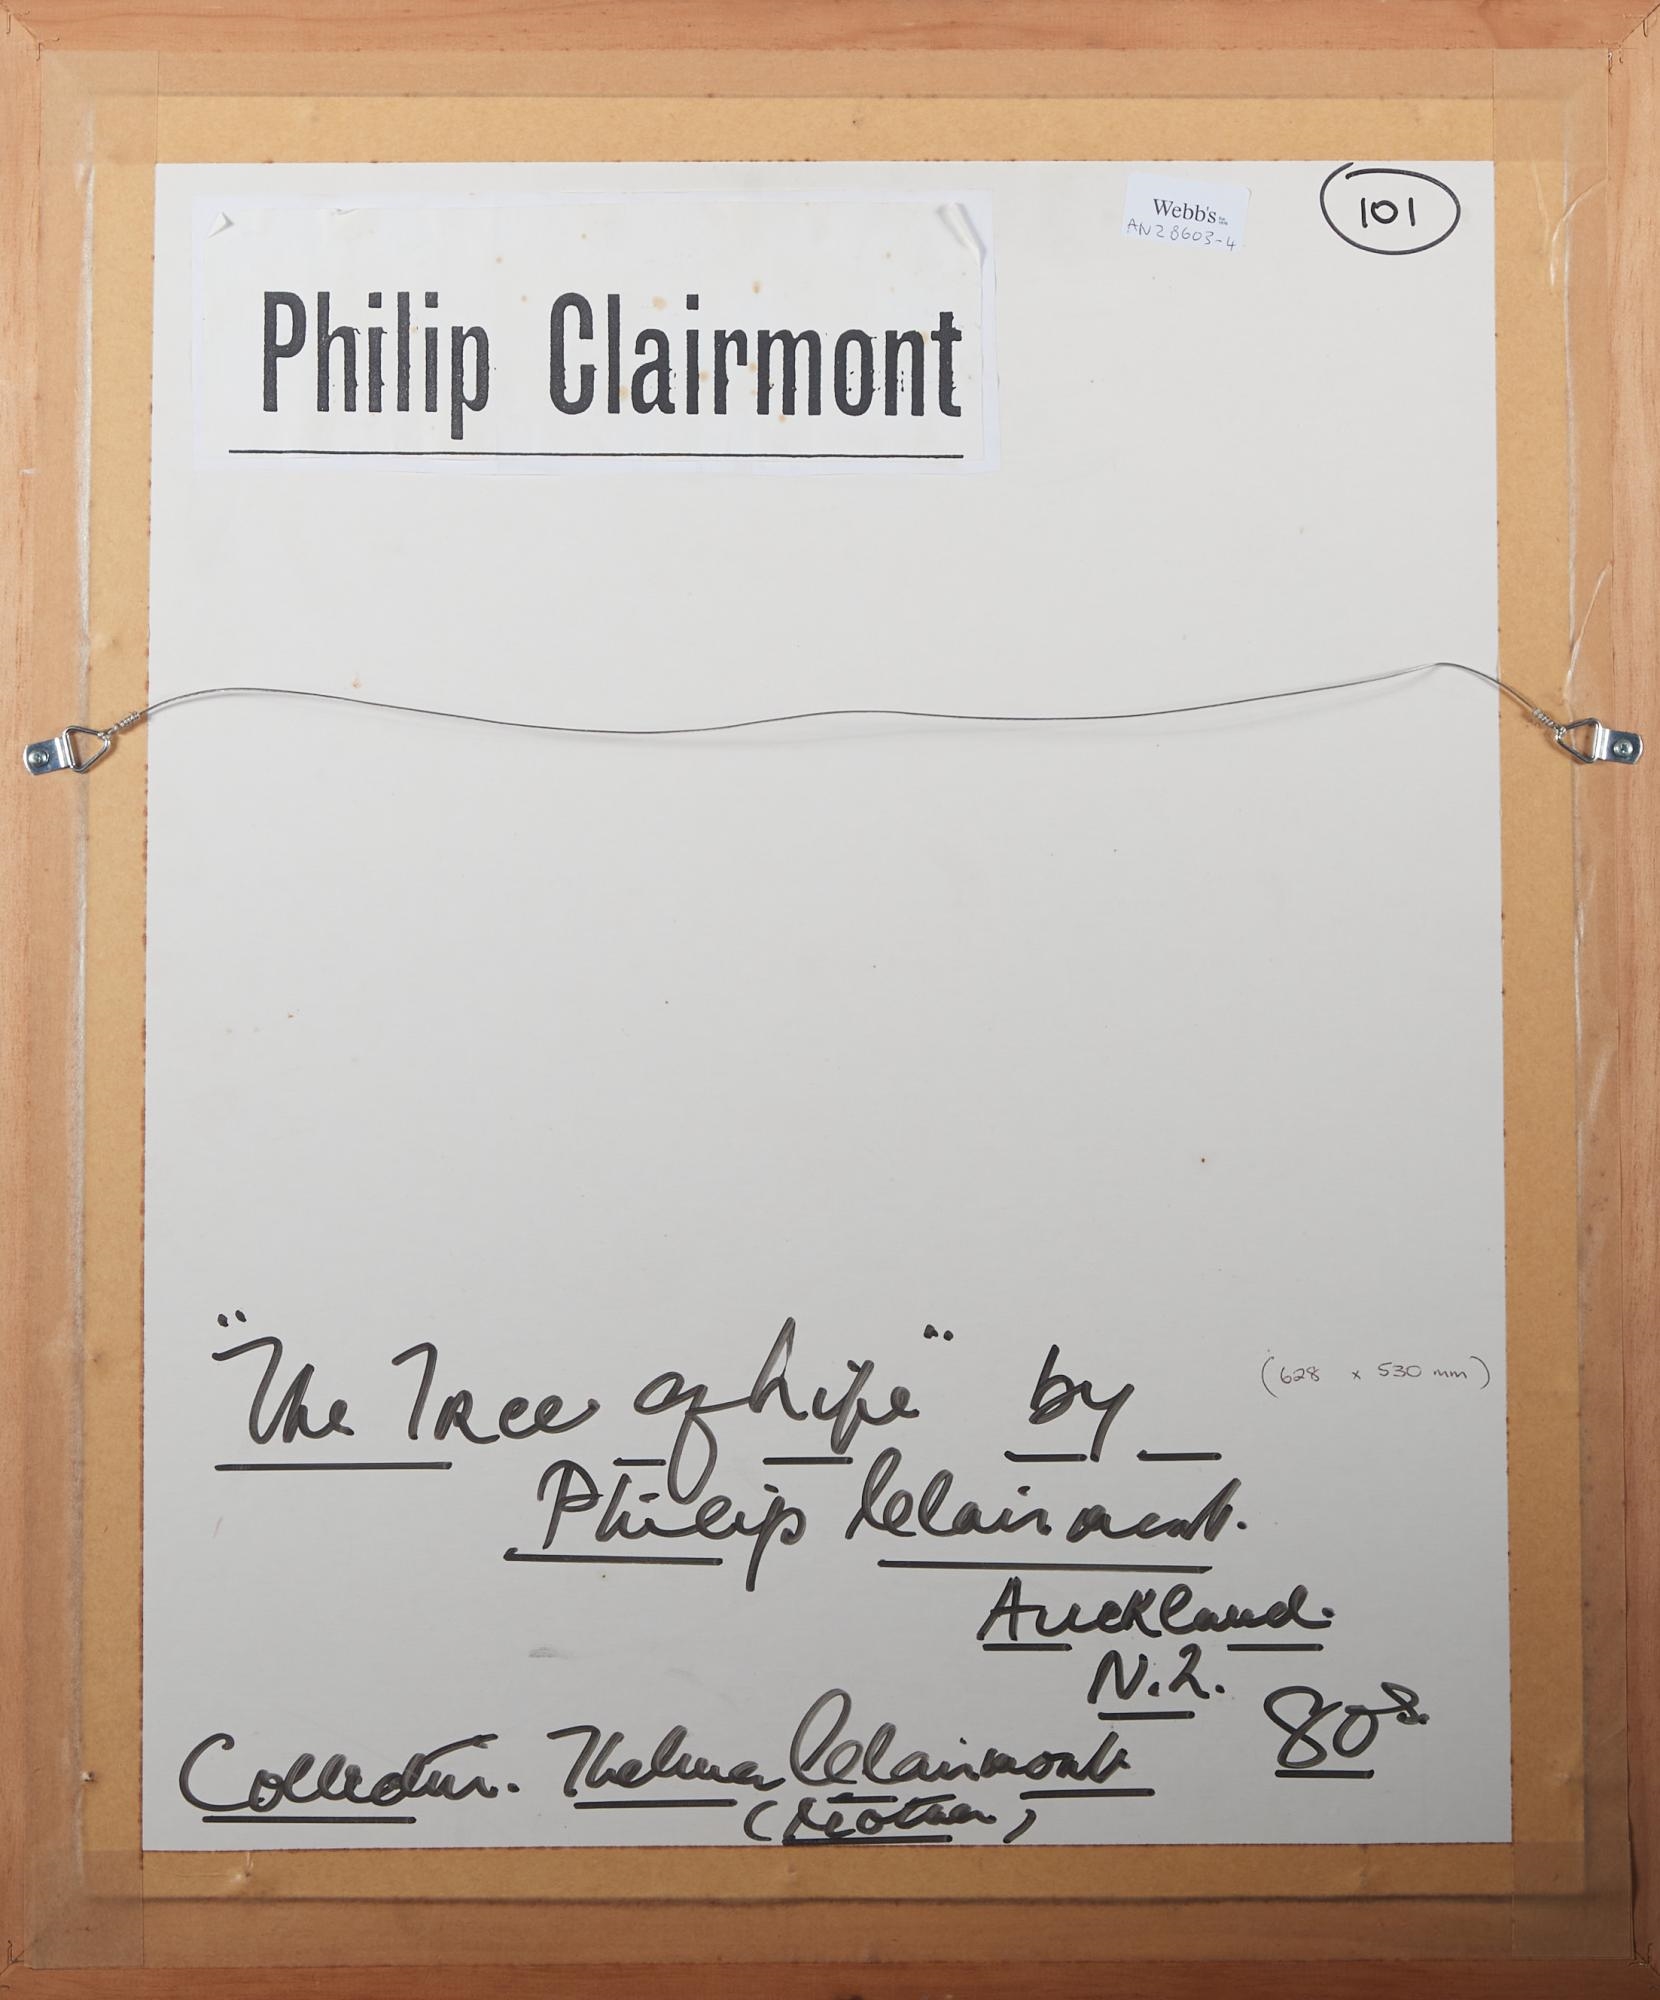 Webb's
AN28603-4
101
Philip Clairmont
"The Tree of Life" by
(628 x 530 mm)
Philip Clairmont.
Auckland.
N.Z.
80s.
Collection. Thelma Clairmont
(Mother)